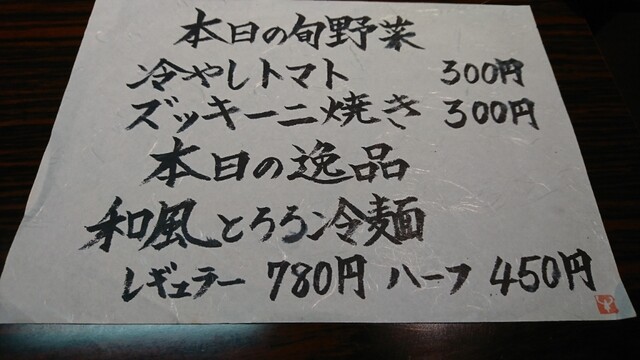 本日の旬野菜
冷やしトマト 300円
ズッキーニ焼き 300円
本日の逸品
和風とろろ冷麺
レギュラー 780円 ハーフ 450円